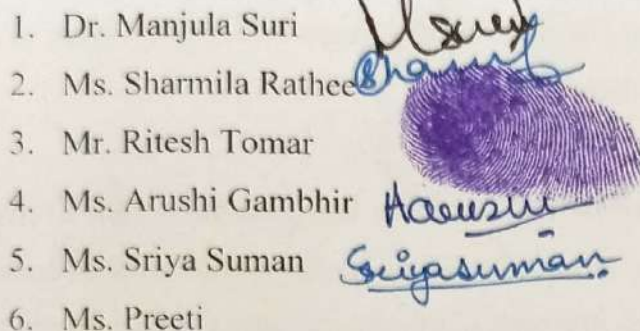 1. Dr. Manjula Suri MSuri
2. Ms. Sharmila Rathee Sharmila
3. Mr. Ritesh Tomar
4. Ms. Arushi Gambhir Aarushi
5. Ms. Sriya Suman Sriyasuman
6. Ms. Preeti